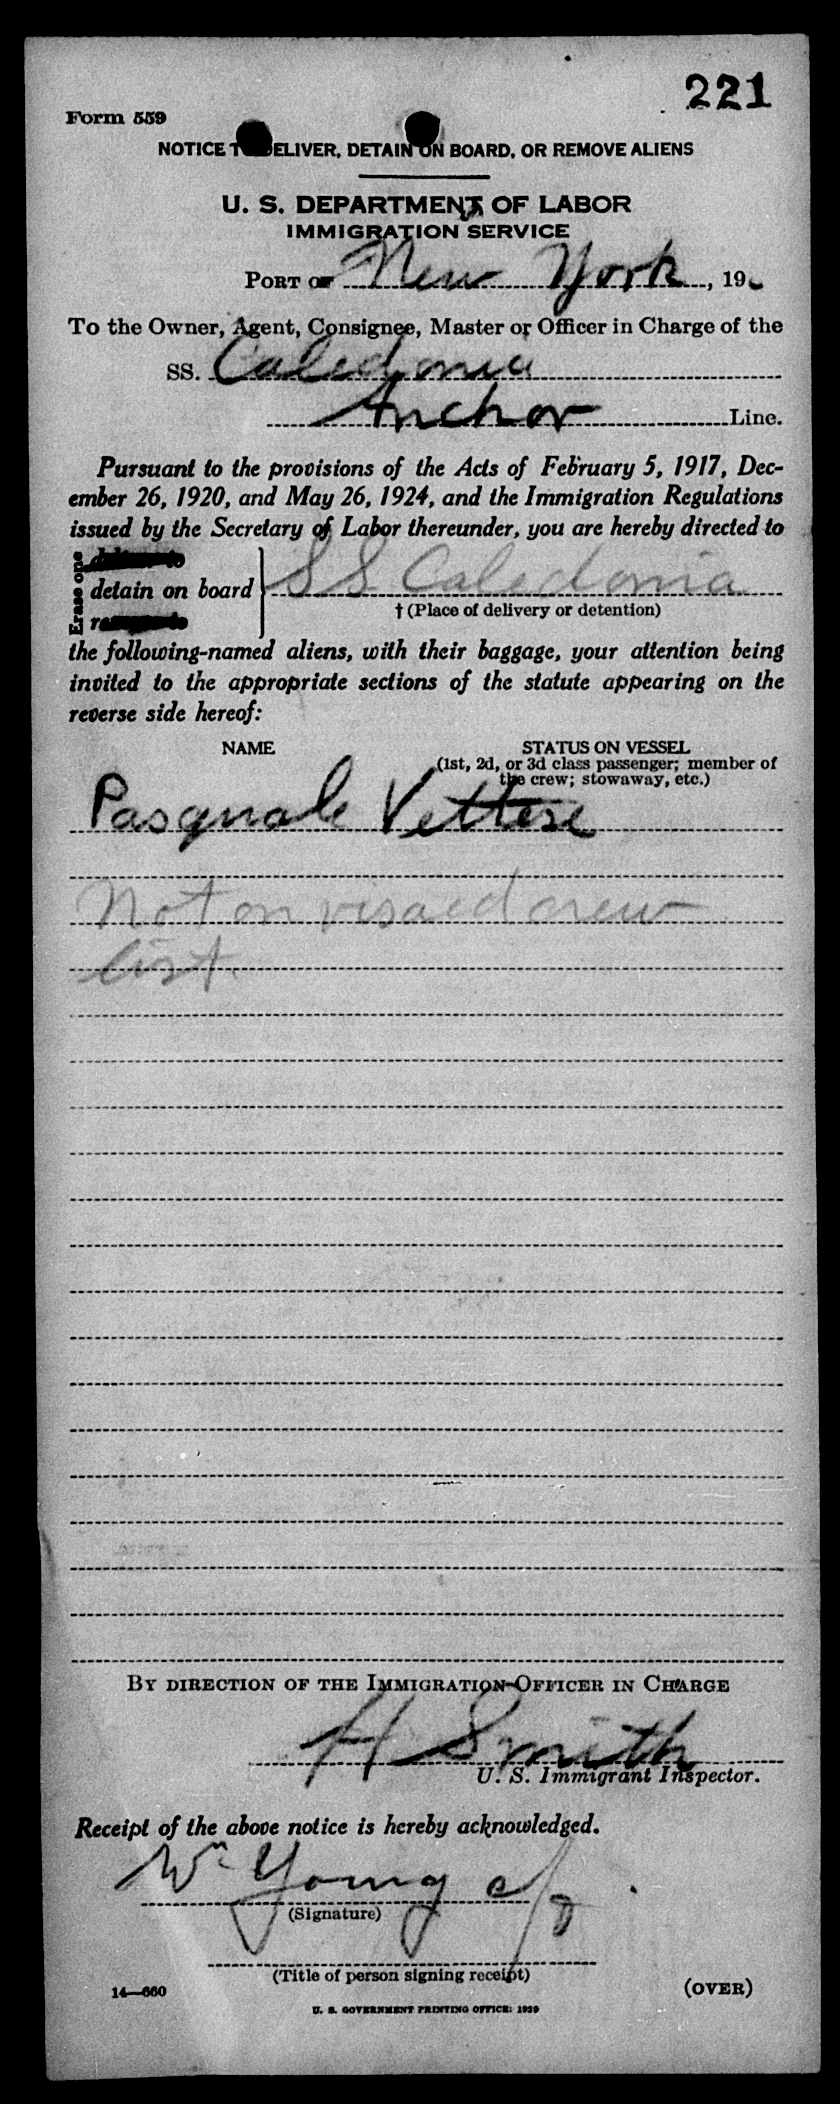 221
Form 559
NOTICE T ELIVER, DETAIN ON BOARD, OR REMOVE ALIENS
U. S. DEPARTMENT OF LABOR
IMMIGRATION SERVICE
PORT OF New York, 19
To the Owner, Agent, Consignee, Master or Officer in Charge of the
SS. Caledonia
Anchor Line.
Pursuant to the provisions of the Acts of February 5, 1917, Dec-
ember 26, 1920, and May 26, 1924, and the Immigration Regulations
issued by the Secretary of Labor thereunder, you are hereby directed to
Erase one
detain on board } SS Caledonia
† (Place of delivery or detention)
the following-named aliens, with their baggage, your attention being
invited to the appropriate sections of the statute appearing on the
reverse side hereof:
NAME STATUS ON VESSEL
(1st, 2d, or 3d class passenger; member of
the crew; stowaway, etc.)
Pasquale Vettese
Not on visaed crew
list.
BY DIRECTION OF THE IMMIGRATION OFFICER IN CHARGE
H Smith
U. S. Immigrant Inspector.
Receipt of the above notice is hereby acknowledged.
Wm Young
(Signature)
(Title of person signing receipt)
14—660 (OVER)
U. S. GOVERNMENT PRINTING OFFICE: 1929